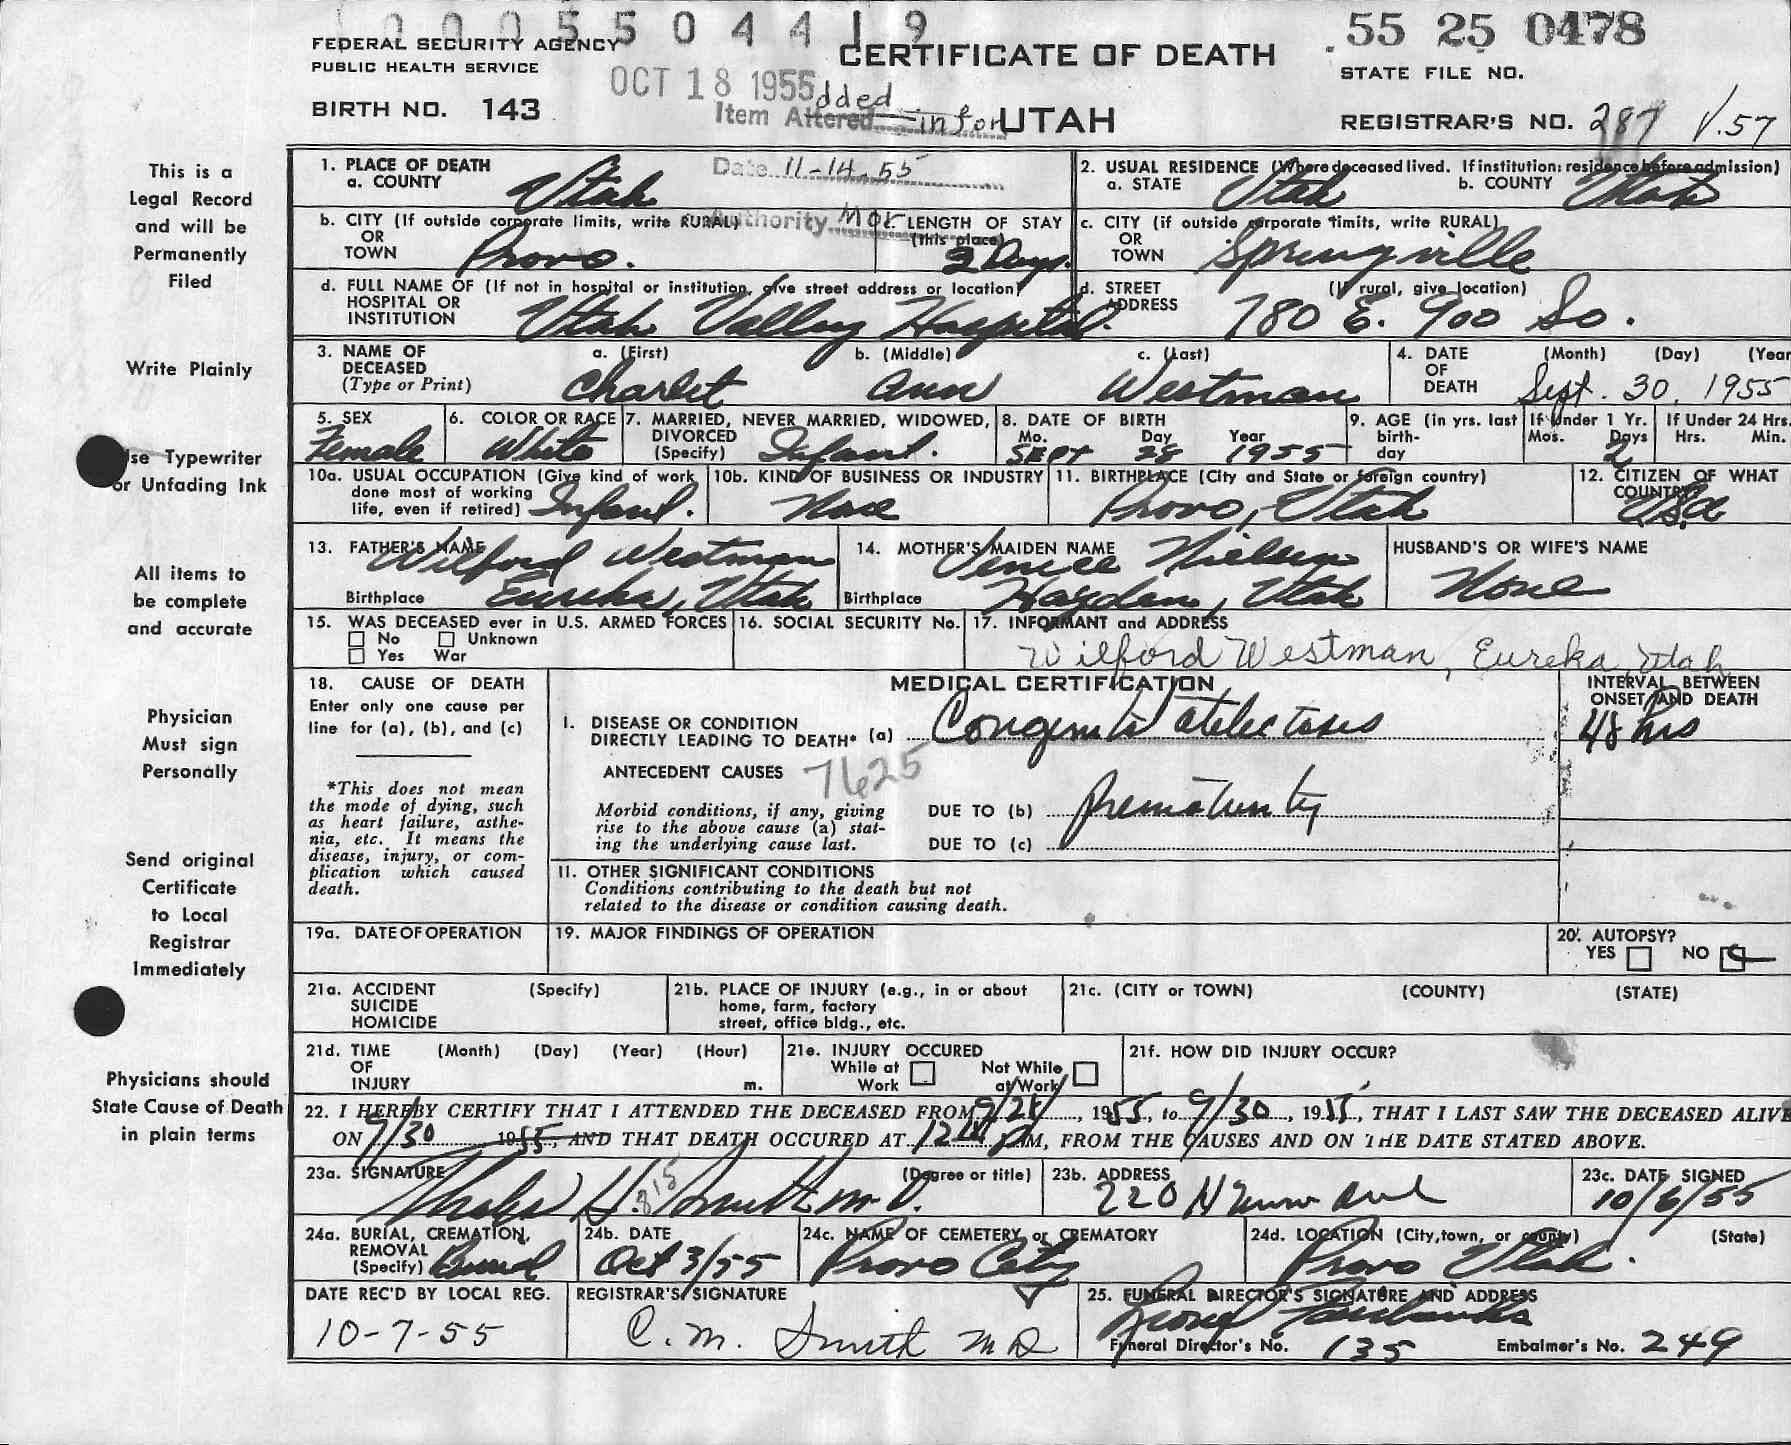 00055 0 4 4 1 9
55 25 0478
FEDERAL SECURITY AGENCY
PUBLIC HEALTH SERVICE
CERTIFICATE OF DEATH
STATE FILE NO.
OCT 18 1955
BIRTH NO. 143
dded
Item Altered infor
UTAH
REGISTRAR'S NO. 287 V.57
Date 11-14-55
Authority Mor
This is a
Legal Record
and will be
Permanently
Filed
Write Plainly
Use Typewriter
or Unfading Ink
All items to
be complete
and accurate
Physician
Must sign
Personally
Send original
Certificate
to Local
Registrar
Immediately
Physicians should
State Cause of Death
in plain terms
1. PLACE OF DEATH
a. COUNTY Utah
2. USUAL RESIDENCE (Where deceased lived. If institution: residence before admission)
a. STATE Utah b. COUNTY Utah
b. CITY (If outside corporate limits, write RURAL)
OR
TOWN Provo.
c. LENGTH OF STAY
(this place)
2 Days.
c. CITY (if outside corporate limits, write RURAL)
OR
TOWN Springville
d. FULL NAME OF (If not in hospital or institution, give street address or location)
HOSPITAL OR
INSTITUTION Utah Valley Hospital.
d. STREET (If rural, give location)
ADDRESS 780 E. 900 So.
3. NAME OF
DECEASED
(Type or Print)
a. (First) b. (Middle) c. (Last)
Charlet Ann Westman
4. DATE (Month) (Day) (Year
OF
DEATH Sept. 30, 1955
5. SEX
Female
6. COLOR OR RACE
White
7. MARRIED, NEVER MARRIED, WIDOWED,
DIVORCED
(Specify) Infant.
8. DATE OF BIRTH
Mo. Day Year
SEPT 28 1955
9. AGE (in yrs. last
birth-
day
If Under 1 Yr.
Mos. Days
2
If Under 24 Hrs.
Hrs. Min.
10a. USUAL OCCUPATION (Give kind of work
done most of working
life, even if retired) Infant.
10b. KIND OF BUSINESS OR INDUSTRY
None
11. BIRTHPLACE (City and State or foreign country)
Provo, Utah
12. CITIZEN OF WHAT
COUNTRY
USA
13. FATHER'S NAME
Wilford Westman
Birthplace Eureka, Utah
14. MOTHER'S MAIDEN NAME
Venice Nielsen
Birthplace Hayden, Utah
HUSBAND'S OR WIFE'S NAME
None
15. WAS DECEASED ever in U.S. ARMED FORCES
No Unknown
Yes War
16. SOCIAL SECURITY No.
17. INFORMANT and ADDRESS
Wilford Westman, Eureka, Utah
18. CAUSE OF DEATH
Enter only one cause per
line for (a), (b), and (c)
*This does not mean
the mode of dying, such
as heart failure, asthe-
nia, etc. It means the
disease, injury, or com-
plication which caused
death.
MEDICAL CERTIFICATION
I. DISEASE OR CONDITION
DIRECTLY LEADING TO DEATH* (a) Congenital atelectasis
INTERVAL BETWEEN
ONSET AND DEATH
48 hrs
ANTECEDENT CAUSES 7625
Morbid conditions, if any, giving
rise to the above cause (a) stat-
ing the underlying cause last.
DUE TO (b) prematurity
DUE TO (c)
II. OTHER SIGNIFICANT CONDITIONS
Conditions contributing to the death but not
related to the disease or condition causing death.
19a. DATE OF OPERATION
19. MAJOR FINDINGS OF OPERATION
20. AUTOPSY?
YES NO
21a. ACCIDENT (Specify)
SUICIDE
HOMICIDE
21b. PLACE OF INJURY (e.g., in or about
home, farm, factory
street, office bldg., etc.
21c. (CITY or TOWN) (COUNTY) (STATE)
21d. TIME (Month) (Day) (Year) (Hour)
OF
INJURY m.
21e. INJURY OCCURED
While at Not While
Work at Work
21f. HOW DID INJURY OCCUR?
22. I HEREBY CERTIFY THAT I ATTENDED THE DECEASED FROM 9/28, 1955, to 9/30, 1955, THAT I LAST SAW THE DECEASED ALIVE
ON 9/30 1955, AND THAT DEATH OCCURED AT M, FROM THE CAUSES AND ON THE DATE STATED ABOVE.
23a. SIGNATURE (Degree or title)
H. Smith M.D.
23b. ADDRESS
220 N
23c. DATE SIGNED
10/6/55
24a. BURIAL, CREMATION,
REMOVAL
(Specify) Burial
24b. DATE
Oct 3/55
24c. NAME OF CEMETERY or CREMATORY
Provo City
24d. LOCATION (City, town, or county) (State)
Provo Utah.
DATE REC'D BY LOCAL REG.
10-7-55
REGISTRAR'S SIGNATURE
C. M. Smith MD
25. FUNERAL DIRECTOR'S SIGNATURE AND ADDRESS
Fairbanks
Funeral Director's No. 135 Embalmer's No. 249